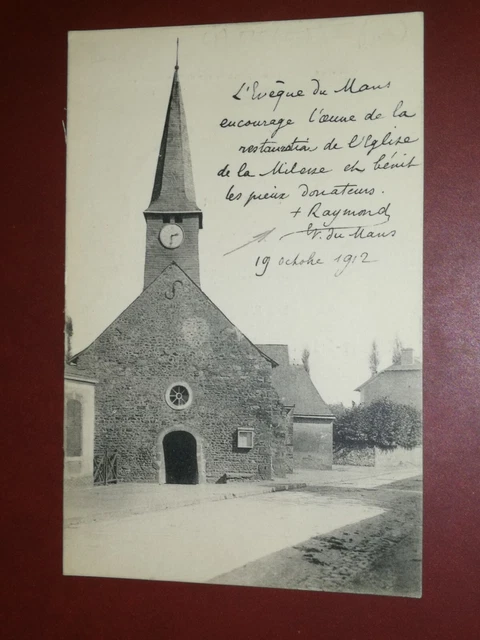 L'Evêque du Mans
encourage l'œuvre de la
restauration de l'Eglise
de la Milesse et bénit
les pieux donateurs.
+ Raymond
Ev. du Mans
19 octobre 1912